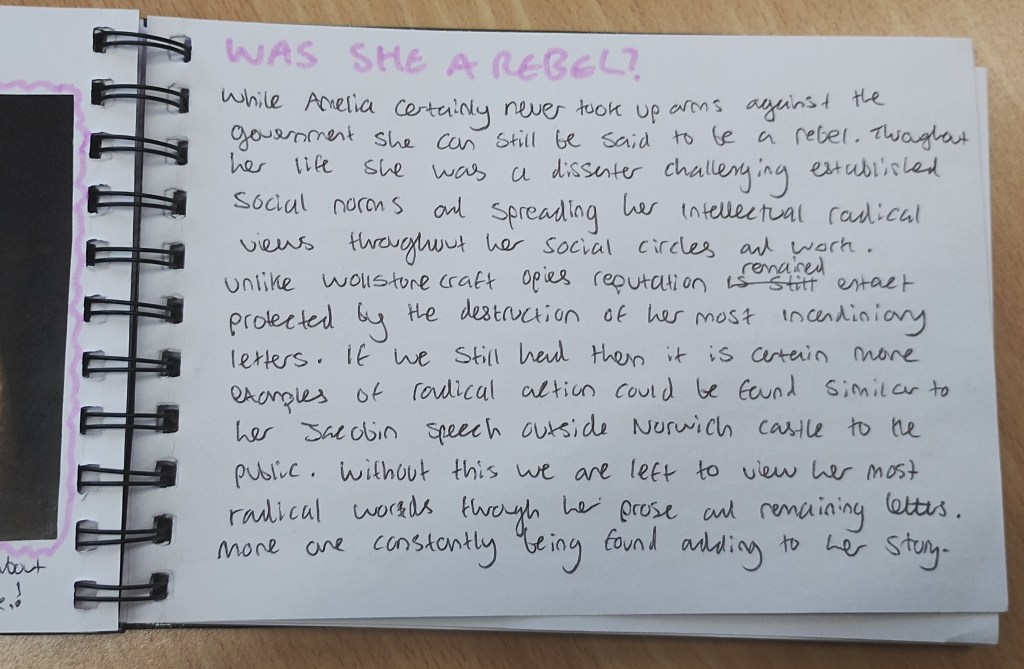 WAS SHE A REBEL?
While Amelia certainly never took up arms against the
government she can still be said to be a rebel. Throughout
her life she was a dissenter challenging established
social norms and spreading her intellectual radical
views throughout her social circles and work.
remained
unlike wollstonecraft opies reputation is still entact
protected by the destruction of her most incendiniary
letters. If we still had them it is certain more
examples of radical action could be found similar to
her Jacobin speech outside Norwich castle to the
public. Without this we are left to view her most
radical words through her prose and remaining letters.
More are constantly being found adding to her story.
bout
e!